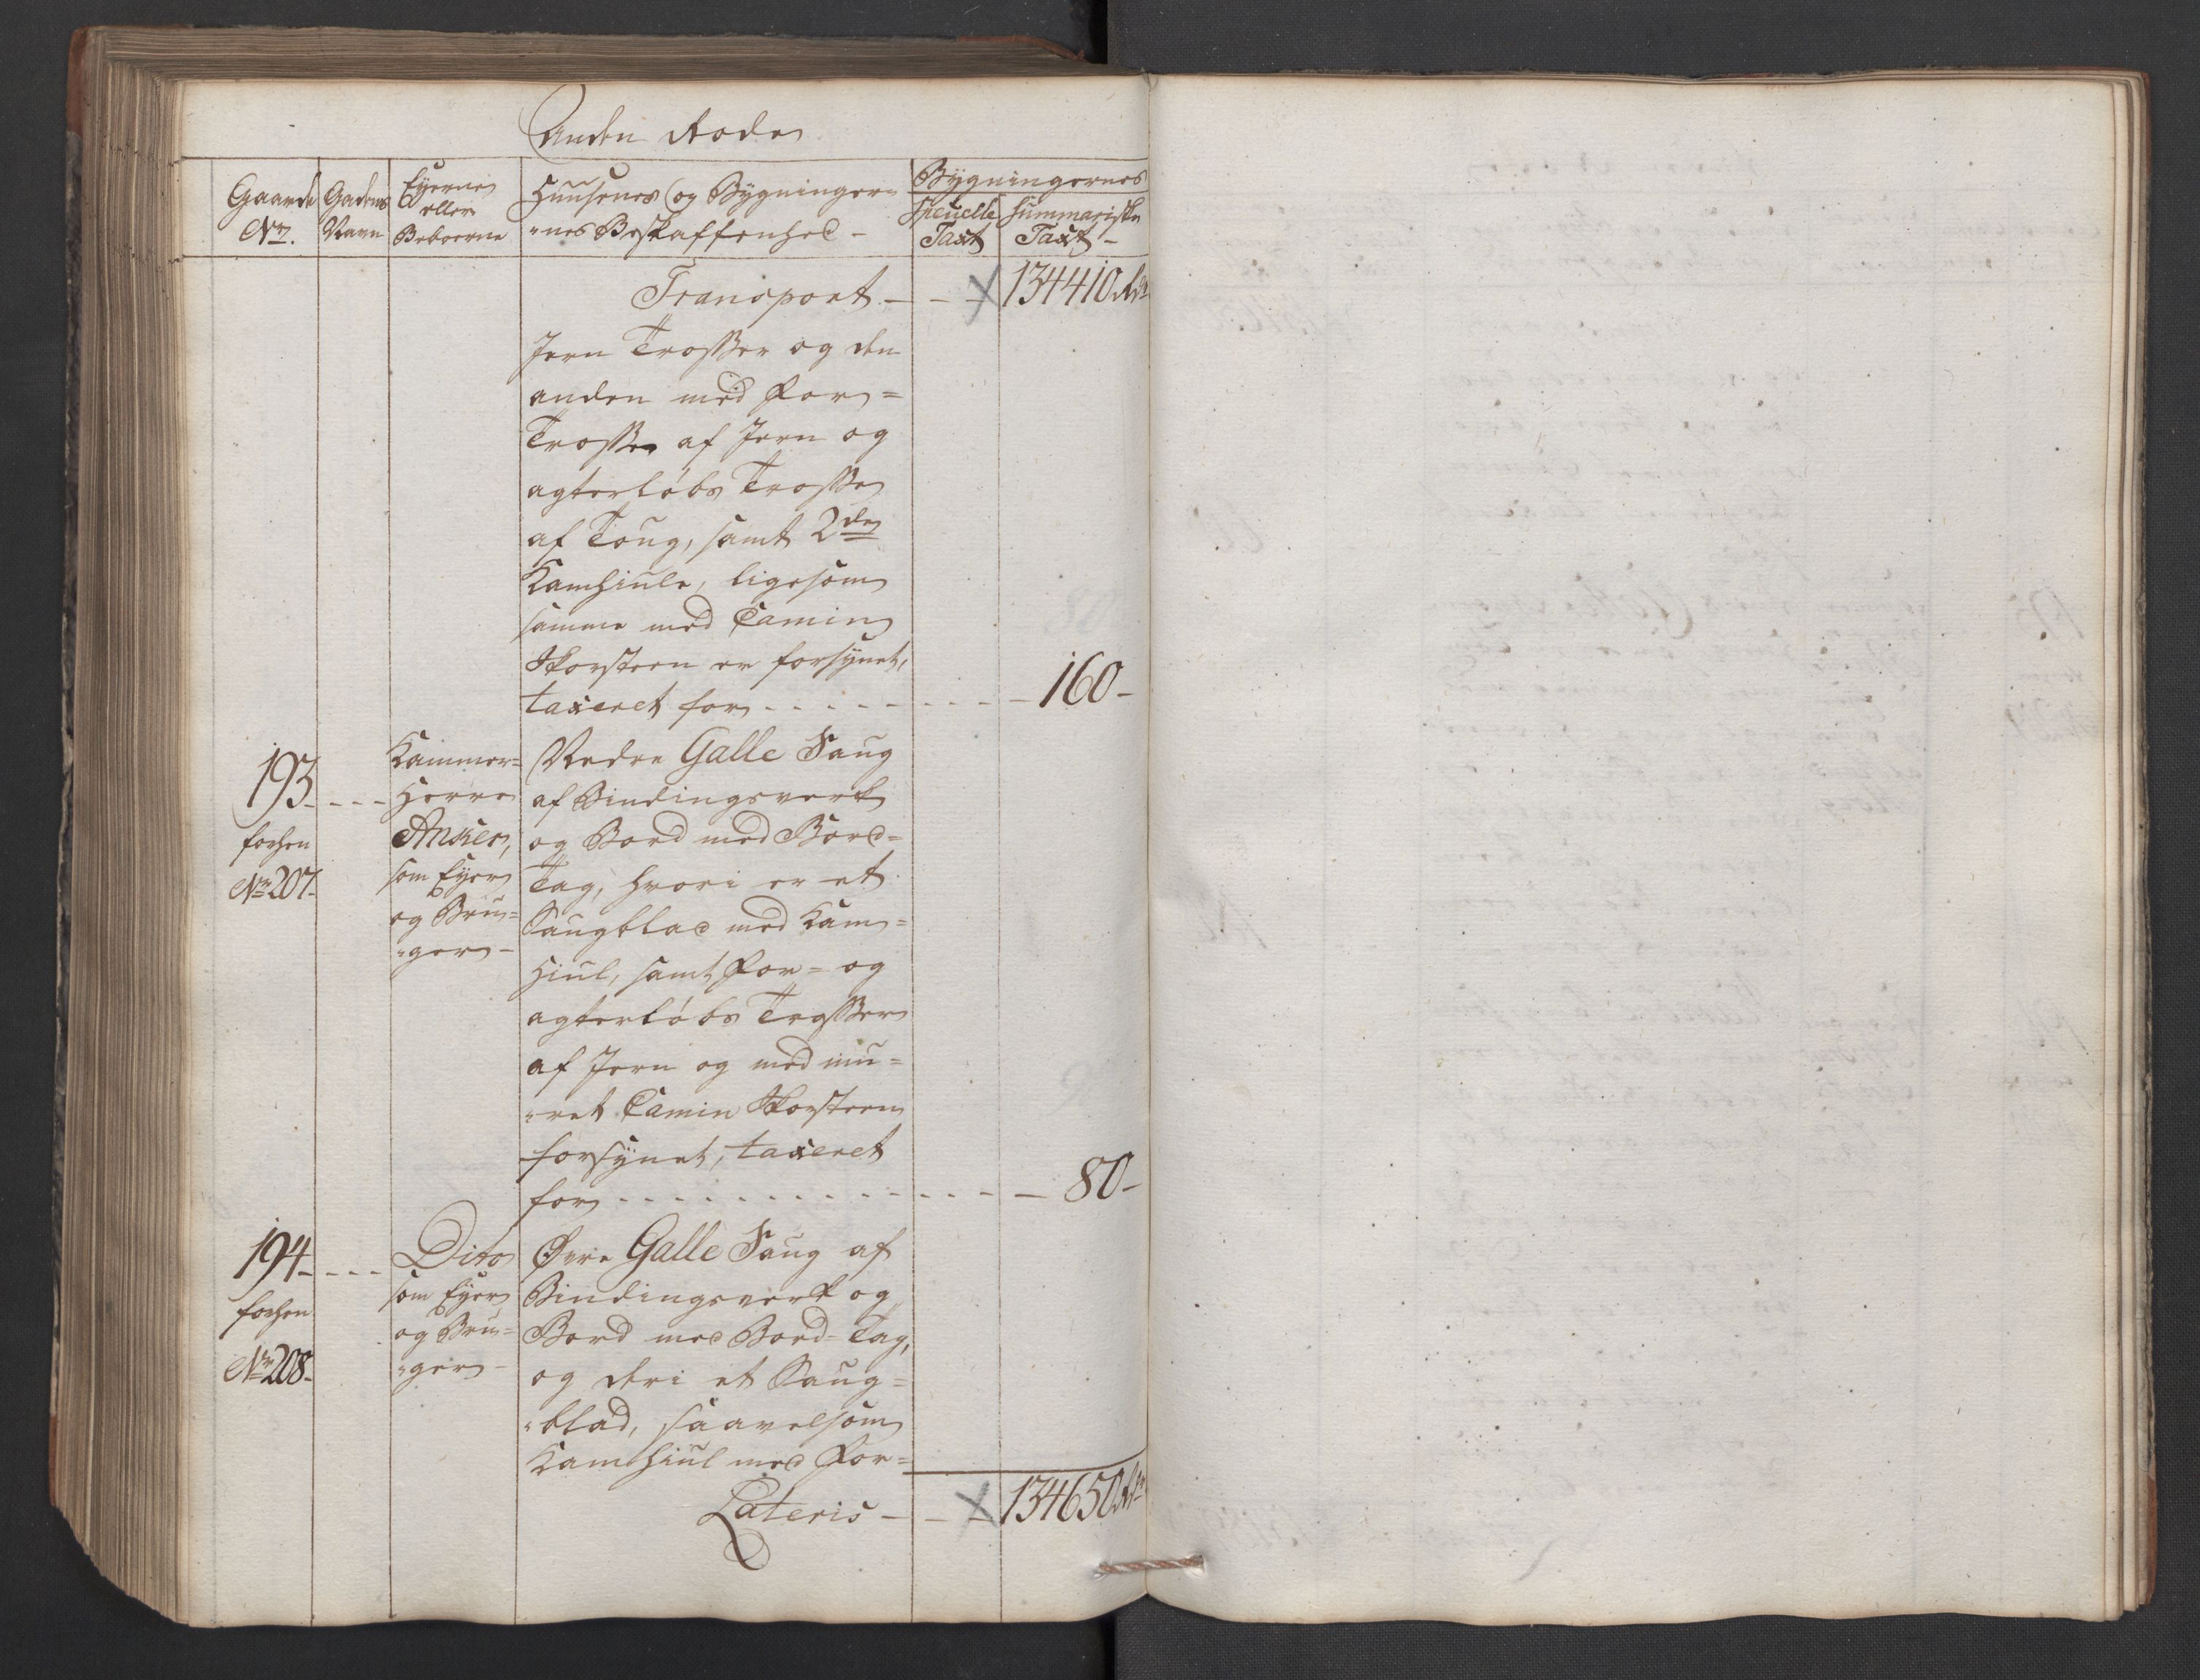 Anden Rode
Gaarde
No.
Gadens
Navn
Eyerne
eller
Beboerne
Huusenes og Bygninger=
=nes Beskaffenhed -
Bygningernes
Speuelle
Taxt
Summariske
Taxt -
Transport - - - 134410 Rdr
Jern Trosser og den
anden med For=
Trosse af Jern og
agterløbs Trosse
af Toug, samt 2de
Kamhiule, ligesom
samme med Camin
Skorsteen er forsynet,
taxeret for - - - - - - - - 160-
193 - - - -
forhen
No 207-
Kammer=
Herre
Anker,
som Eyer
og Bru=
=ger -
Nedre Galle Saug
af Bindingsverk
og Bord med Bord=
Tag, hvori er et
Saugblad med Kam=
Hiul, samt For= og
agterløbs Trosser
af Jern og med mu=
=ret Camin Skorsteen
forsynet, taxeret
for - - - - - - - - - - - 80-
194 - - - -
forhen
No 208-
Dito
som Eyer
og Bru=
=ger -
Øvre Galle Saug af
Bindingsverk og
Bord med Bord= Tag,
og deri et Saug=
=blad, saavelsom
Kamhiul med For=
Lateris - - - 134650 Rdr